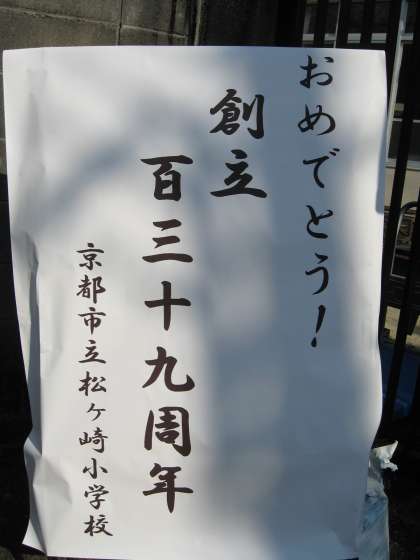 おめでとう!
創立
百三十九周年
京都市立松ヶ崎小学校